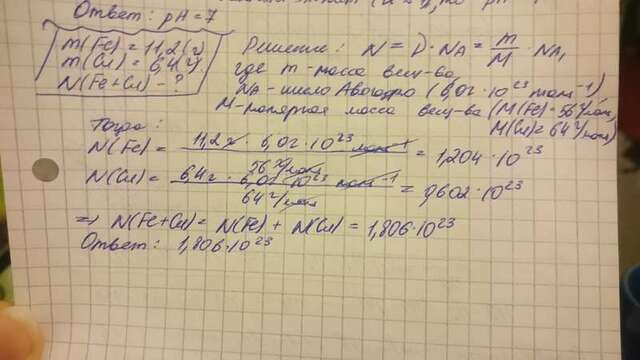 Ответ: pH = 7
m(Fe) = 11,2 (г)
m(Cu) = 6,4 (г).
N(Fe+Cu) - ?
Решение: N = ν · NA = m/M · NA,
где m - масса вещ-ва,
NA - число Авогадро (6,02 · 10²³ моль⁻¹)
M - молярная масса вещ-ва (M(Fe) = 56 г/моль,
M(Cu) = 64 г/моль)
Тогда:
N(Fe) = 11,2 г · 6,02 · 10²³ моль⁻¹ / 56 г/моль = 1,204 · 10²³
N(Cu) = 6,4 г · 6,02 · 10²³ моль⁻¹ / 64 г/моль = 0,602 · 10²³
=> N(Fe+Cu) = N(Fe) + N(Cu) = 1,806 · 10²³
Ответ: 1,806 · 10²³